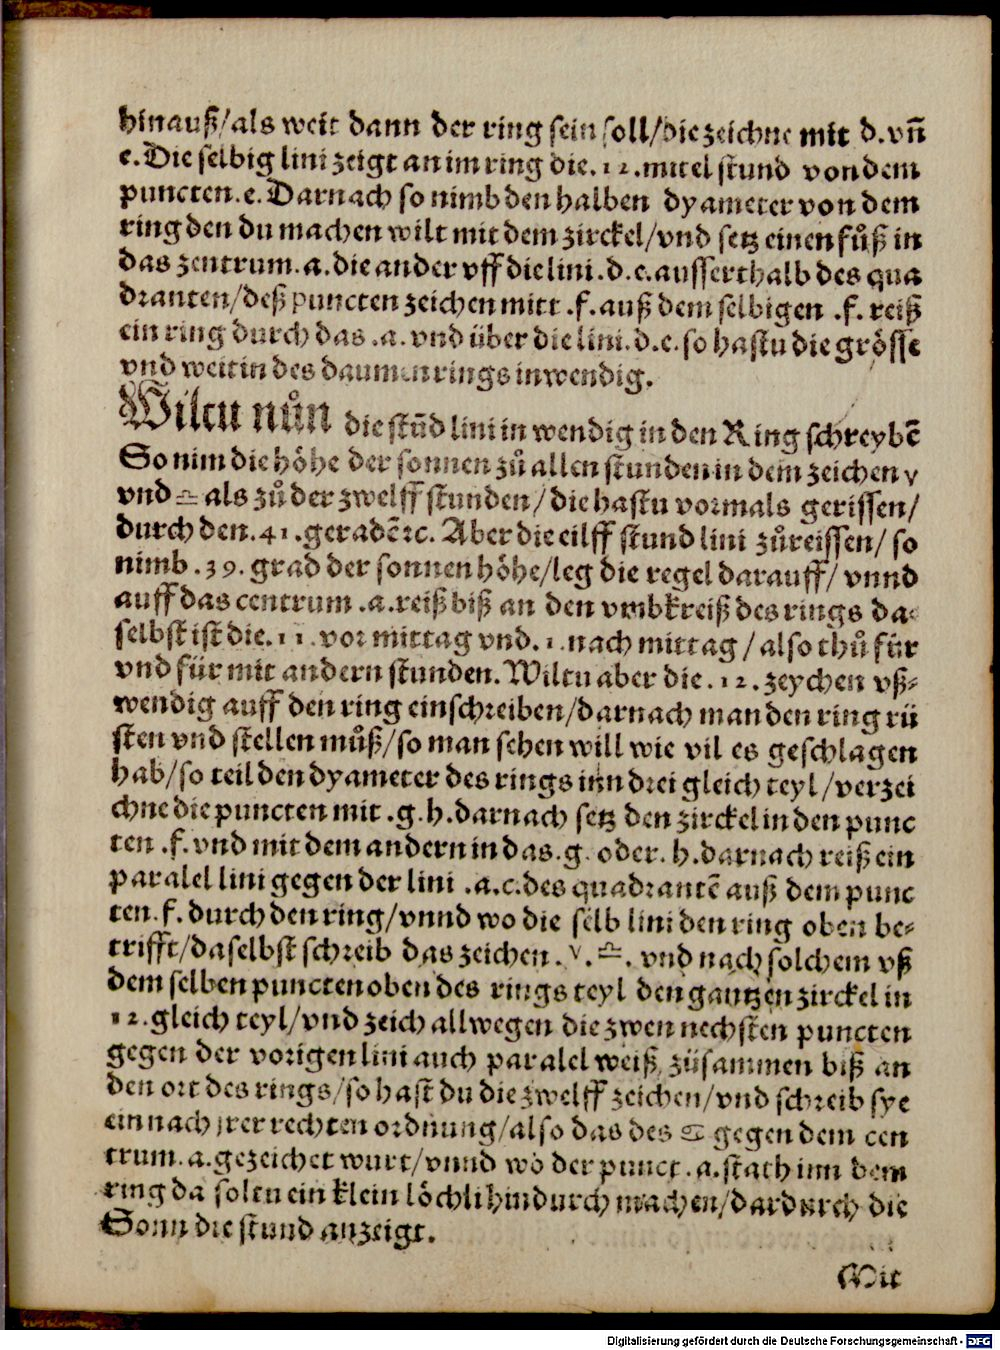 hinauß/als weit dann der ring sein soll/die zeichne mit d. vñ
e. Die selbig lini zeigt an im ring die .12. mittel stund von dem
puncten .e. Darnach so nimb den halben dyameter von dem
ring den du machen wilt mit dem zirckel/vnd setz einen fůß in
das zentrum .a. die ander vff die lini .d.e. ausserthalb des qua
dranten/deß puncten zeichen mitt .f. auß dem selbigen .f. reiß
ein ring durch das .a. vnd über die lini .d.e. so hastu die grösse
vnd weitin des daumenrings inwendig.
Wiltu nůn die stūd lini in wendig in den Ring schreybē
So nim die höhe der sonnen zů allen stunden in dem zeichen ♈
vnd ♎ als zů der zwelff stunden/die hastu vormals gerissen/
durch den .41. geradē ꝛc. Aber die eilff stund lini zůreissen/so
nimb .39. grad der sonnen höhe/leg die regel darauff/vnnd
auff das centrum .a. reiß biß an den vmbkreiß des rings da⸗
selbst ist die .11. vor mittag vnd .1. nach mittag/also thů für
vnd für mit andern stunden. Wiltu aber die .12. zeychen vß⸗
wendig auff den ring einschreiben/darnach man den ring rü
sten vnd stellen můß/so man sehen will wie vil es geschlagen
hab/so teil den dyameter des rings inn drei gleich teyl/verzei
chne die puncten mit .g.h. darnach setz den zirckel in den punc
ten .f. vnd mit dem andern in das .g. oder .h. darnach reiß ein
paralel lini gegen der lini .a.c. des quadrantē auß dem punc
ten .f. durch den ring/vnnd wo die selb lini den ring oben be⸗
trifft/daselbst schreib das zeichen .♈.♎. vnd nach solchem vß
dem selben puncten oben des rings teyl den gantzen zirckel in
12. gleich teyl/vnd zeich allwegen die zwen nechsten puncten
gegen der vorigen lini auch paralel weiß zůsammen biß an
den ort des rings/so hast du die zwelff zeichen/vnd schreib sye
ein nach jrer rechten ordnung/also das des ♋ gegen dem cen
trum .a. gezeichet wurt/vnnd wo der punct .a. stath inn dem
ring da soltu ein klein löchli hindurch machen/dardurch die
Sonn die stund anzeigt.
Mit
Digitalisierung gefördert durch die Deutsche Forschungsgemeinschaft - DFG